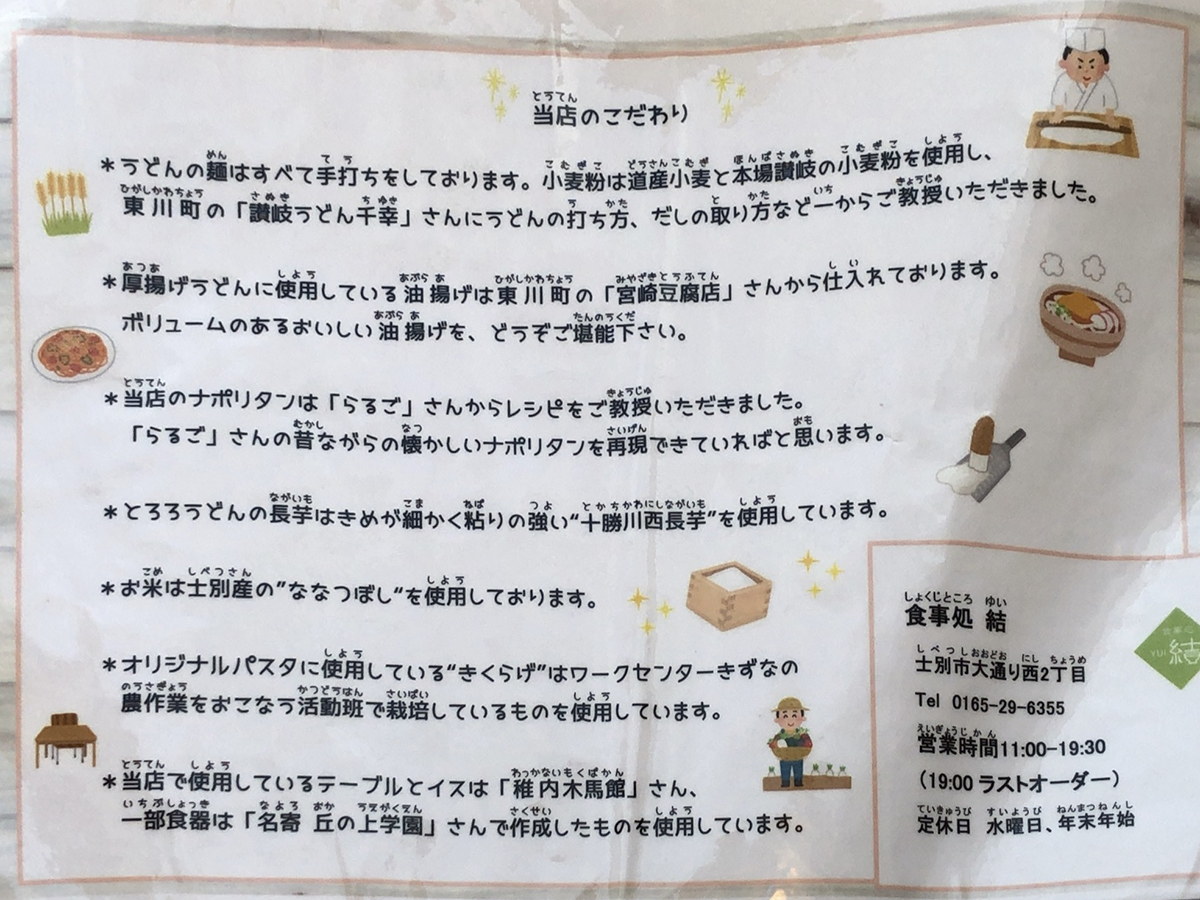 当店のこだわり
＊うどんの麺はすべて手打ちをしております。小麦粉は道産小麦と本場讃岐の小麦粉を使用し、
東川町の「讃岐うどん千幸」さんにうどんの打ち方、だしの取り方など一からご教授いただきました。
＊厚揚げうどんに使用している油揚げは東川町の「宮崎豆腐店」さんから仕入れております。
ボリュームのあるおいしい油揚げを、どうぞご堪能下さい。
＊当店のナポリタンは「らるご」さんからレシピをご教授いただきました。
「らるご」さんの昔ながらの懐かしいナポリタンを再現できていればと思います。
＊とろろうどんの長芋はきめが細かく粘りの強い“十勝川西長芋”を使用しています。
＊お米は士別産の”ななつぼし“を使用しております。
＊オリジナルパスタに使用している“きくらげ”はワークセンターきずなの
農作業をおこなう活動班で栽培しているものを使用しています。
＊当店で使用しているテーブルとイスは「稚内木馬館」さん、
一部食器は「名寄 丘の上学園」さんで作成したものを使用しています。
食事処 結
士別市大通り西2丁目
Tel 0165-29-6355
営業時間11:00-19:30
（19:00 ラストオーダー）
定休日 水曜日、年末年始
結